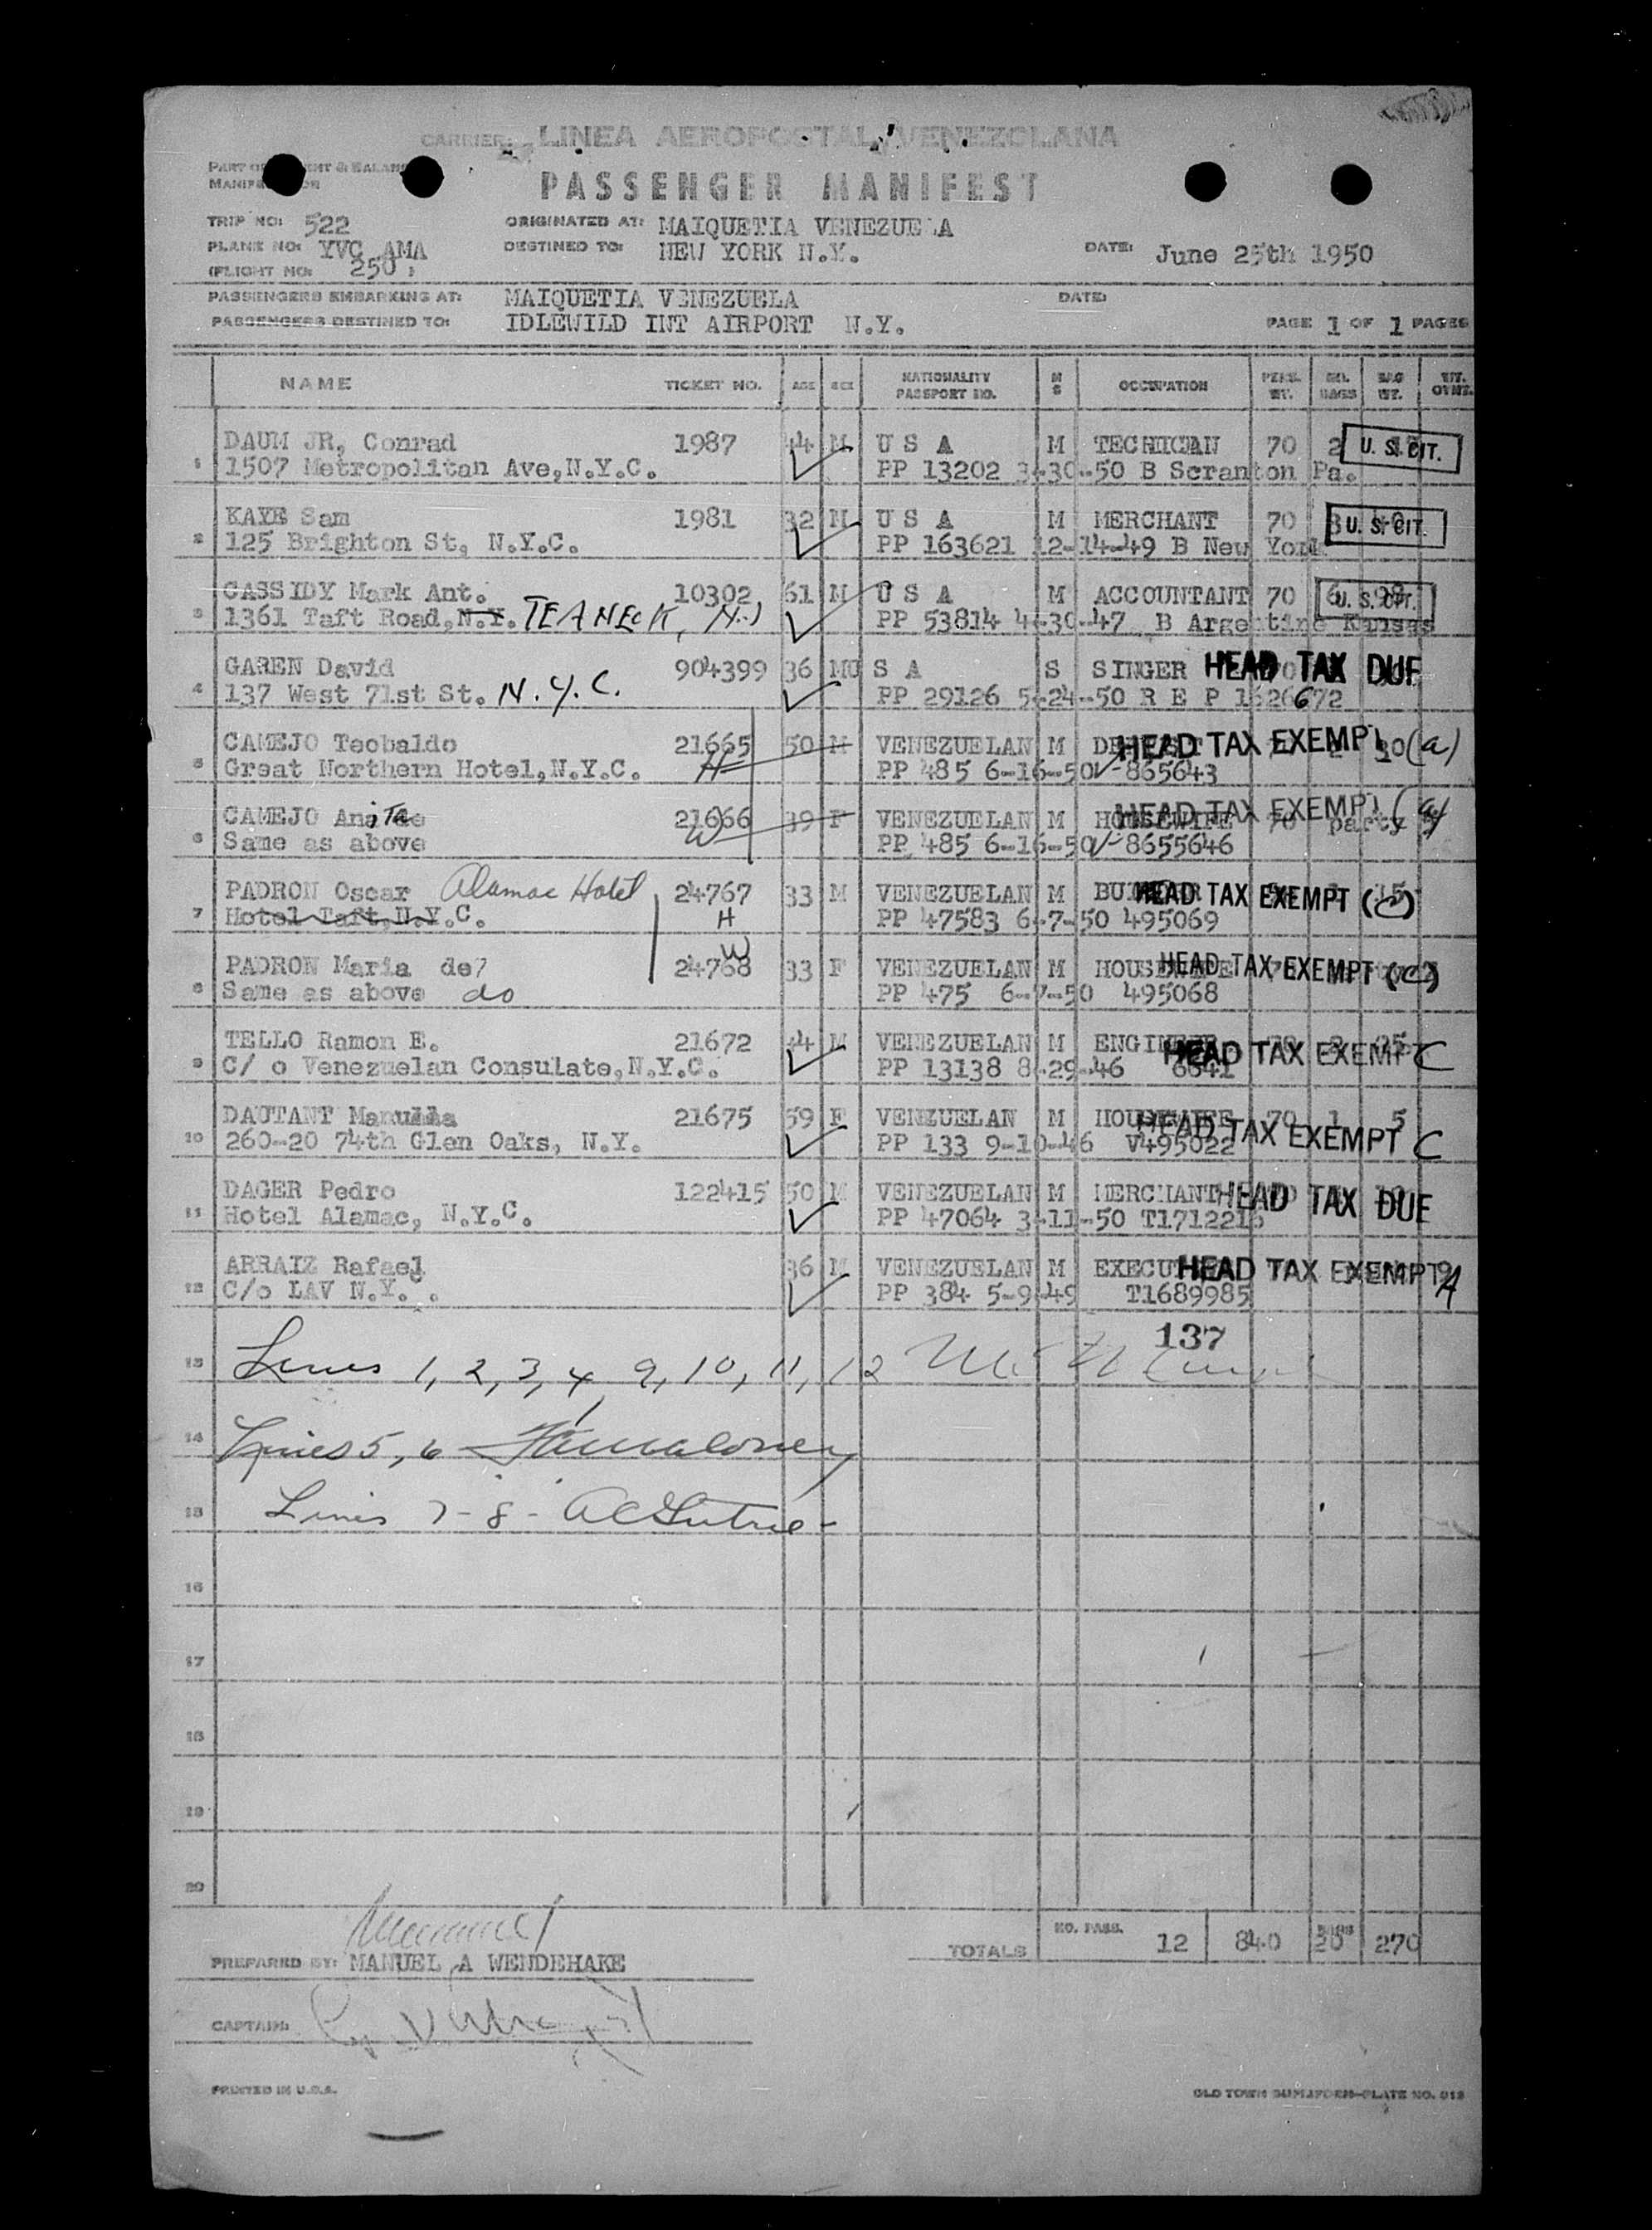 CARRIER: LINEA AEROPOSTAL VENEZOLANA
PASSENGER MANIFEST
TRIP NO: 522 ORIGINATED AT: MAIQUETIA VENEZUELA
PLANE NO: YVC AMA DESTINED TO: NEW YORK N.Y. DATE: June 25th 1950
(FLIGHT NO: 250)
PASSENGERS EMBARKING AT: MAIQUETIA VENEZUELA DATE:
PASSENGERS DESTINED TO: IDLEWILD INT AIRPORT N.Y. PAGE 1 OF 1 PAGES
NAME TICKET NO. AGE SEX NATIONALITY PASSPORT NO. M S OCCUPATION PERS. WT. NO. BAGS BAG WT.
DAUM JR, Conrad 1987 44 M U S A M TECHICIAN 70 2 U. S. CIT.
1 1507 Metropolitan Ave,N.Y.C. PP 13202 3-30-50 B Scranton Pa.
KAYE Sam 1981 32 M U S A M MERCHANT 70 3 U. S. CIT.
2 125 Brighton St, N.Y.C. PP 163621 12-14-49 B New York
CASSIDY Mark Ant. 10302 61 M U S A M ACCOUNTANT 70 6 98 U. S. CIT.
3 1361 Taft Road,N.Y. TEANECK, N.J PP 53814 4-30-47 B Argentine Kansas
GAREN David 904399 36 MU S A S SINGER HEAD TAX DUE
4 137 West 71st St. N.Y.C. PP 29126 5-24-50 R E P 1626672
CAMEJO Teobaldo 21665 50 M VENEZUELAN M HEAD TAX EXEMPT 30 (a)
5 Great Northern Hotel,N.Y.C. H PP 485 6-16-50 V-865643
CAMEJO Anita 21666 39 F VENEZUELAN M HOUSEWIFE 70 party HEAD TAX EXEMPT (a)
6 Same as above W PP 485 6-16-50 V-8655646
PADRON Oscar Alamac Hotel 24767 33 M VENEZUELAN M HEAD TAX EXEMPT (c)
7 Hotel Taft,N.Y.C. H PP 47583 6-7-50 495069
PADRON Maria de 24768 W 33 F VENEZUELAN M HOUSEWIFE HEAD TAX EXEMPT (c)
8 Same as above do PP 475 6-7-50 495068
TELLO Ramon E. 21672 44 M VENEZUELAN M ENGINEER 25 HEAD TAX EXEMPT C
9 C/ o Venezuelan Consulate,N.Y.C. PP 13138 8-29-46 6641
DAUTANT Manuela 21675 59 F VENZUELAN M HOUSEWIFE 70 1 5 HEAD TAX EXEMPT C
10 260-20 74th Glen Oaks, N.Y. PP 133 9-10-46 V495022
DAGER Pedro 122415 50 M VENEZUELAN M MERCHANT HEAD TAX DUE
11 Hotel Alamac, N.Y.C. PP 47064 3-11-50 T1712216
ARRAIZ Rafael 36 M VENEZUELAN M EXECUTIVE HEAD TAX EXEMPT A
12 C/o LAV N.Y. . PP 384 5-9-49 T1689985
137
13 Lines 1, 2, 3, 4, 9, 10, 11, 12
14 Lines 5, 6
15 Lines 7-8-
16
17
18
19
20
TOTALS NO. PASS. 12 840 BAGS 20 270
PREPARED BY: MANUEL A WENDEHAKE
CAPTAIN:
PRINTED IN U.S.A.